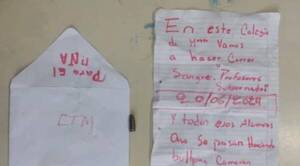 Para El
UNA
ETM
En este Colegio
de Vamos
a haser Correr
Sangre. Profesores
Subernador
20/06/2024
Y todos esos Alumnos
Que se pasan Haciendo
bullyng